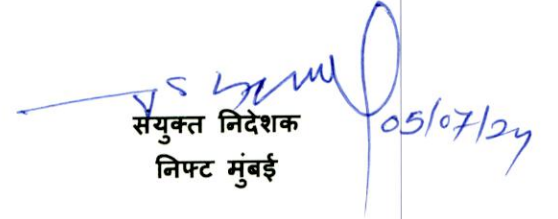 05/07/24
संयुक्त निदेशक
निफ्ट मुंबई